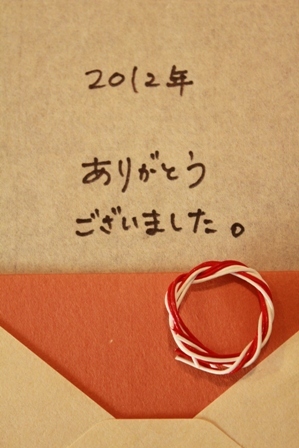 2012年
ありがとう
ございました。